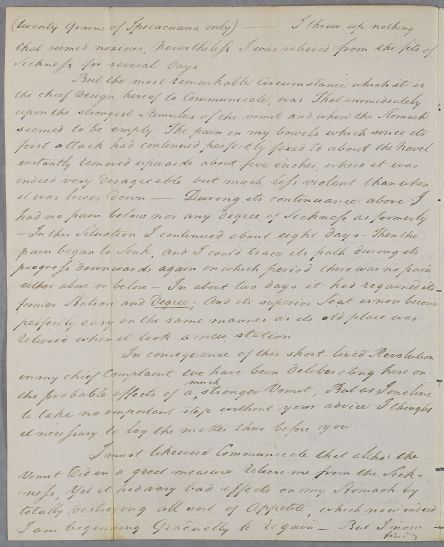 (twenty Grains of Ipecacuana only) — I threw up nothing
that seemed noxious, nevertheless I was relieved from the fits of
Sickness for several days
But the most remarkable Circumstance which it is
the chief design hereof to Communicate, was That immediately
upon the strongest Stimulus of the vomit and when the Stomach
seemed to be empty The pain in my bowels which since its
first attack had continued perfectly fixed to about the Navel
instantly removed upwards about five inches, where it was
indeed very disagreeable but much less violent than when
it was lower down — During its continuance above I
had no pain below nor any degree of Sickness as formerly
— In this Situation I continued about eight days — Then the
pain began to Sink, and I could trace its path during its
progress downwards again in which period there was no pain
either above or below — In about two days it had regained its
former Station and Degree, And its superior Seat is now become
perfectly easy in the same manner as its old place was
relieved when it took a new station
In consequence of this short lived Revolution
in my chief Complaint we have been Deliberating here on
the probable effects of a much stronger Vomit, But as I incline
to take no important step without your advice I thought
it necessary to lay the matter thus before you
I must likewise Communicate that altho' the
Vomit Did in a great measure relieve me from the Sick=
=ness, Yet it had very bad effects on my Stomach by
totally destroying all sort of Appetite, which now indeed
I am beginning Gradually to regain — But I now